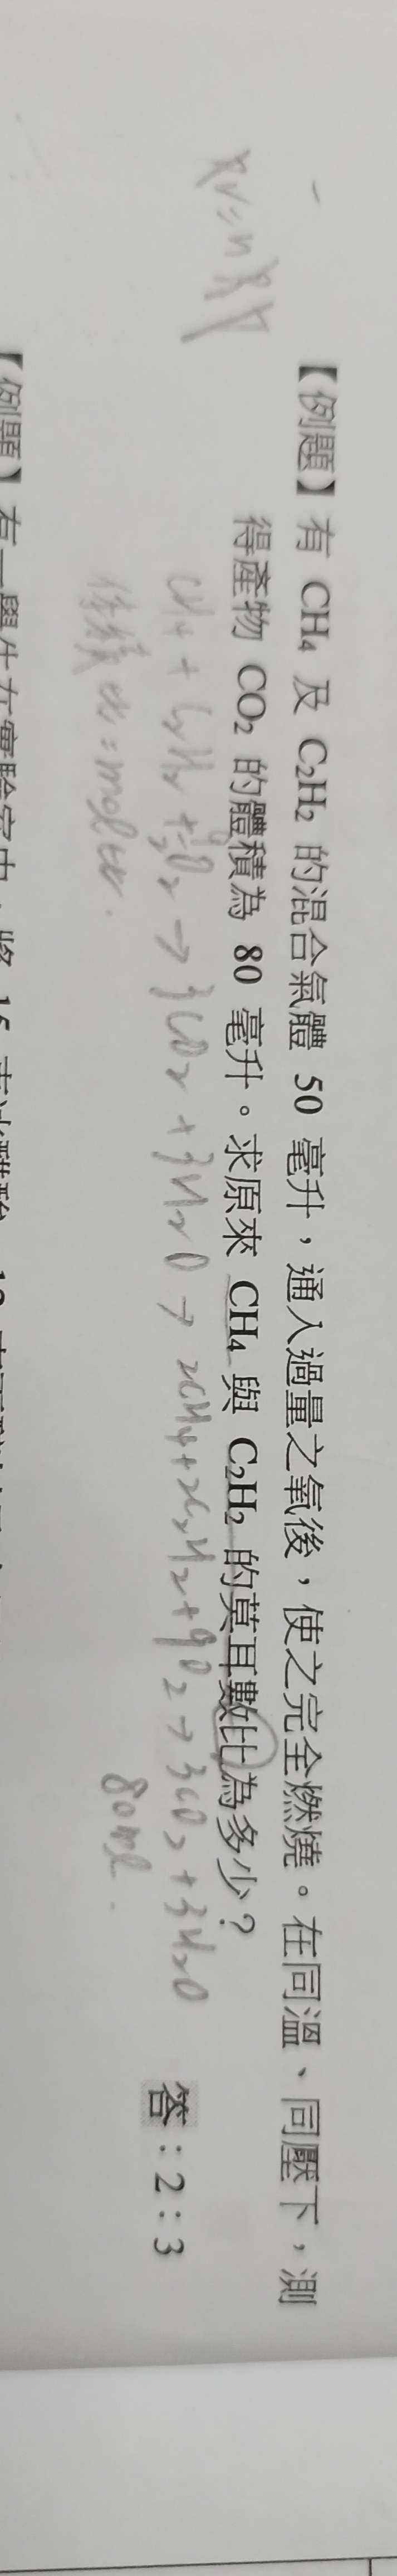 【例題】有 CH₄ 及 C₂H₂ 的混合氣體 50 毫升，通入過量之氧後，使之完全燃燒。在同溫、同壓下，測
得產物 CO₂ 的體積為 80 毫升。求原來 CH₄ 與 C₂H₂ 的莫耳數比為多少？
答：2：3
CH₄ + C₂H₂ + 9/2 O₂ → 3CO₂ + 3H₂O → 2CH₄+2C₂H₂+9O₂→3CO₂+3H₂O
80ml.
體積比=mol比.
【例題】有一學生在實驗室中，將 15